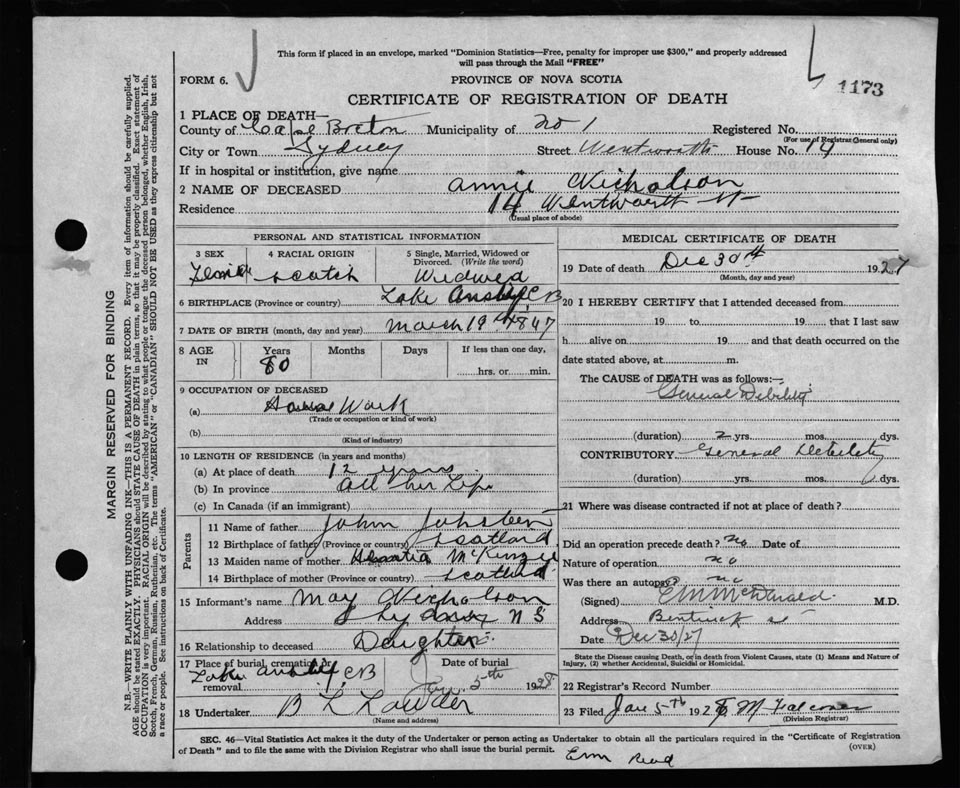 This form if placed in an envelope, marked "Dominion Statistics—Free, penalty for improper use $300," and properly addressed
will pass through the Mail "FREE"
FORM 6.
PROVINCE OF NOVA SCOTIA
1173
CERTIFICATE OF REGISTRATION OF DEATH
1 PLACE OF DEATH—
County of Cape Breton Municipality of No 1 Registered No.
(For use of Registrar General only)
City or Town Sydney Street Wentworth House No. 14
If in hospital or institution, give name
2 NAME OF DECEASED Annie Nicholson
Residence 14 Wentworth St
(Usual place of abode)
PERSONAL AND STATISTICAL INFORMATION
3 SEX 4 RACIAL ORIGIN 5 Single, Married, Widowed or Divorced. (Write the word)
Female Scotch Widwed
6 BIRTHPLACE (Province or country) Lake Ainslie, CB
7 DATE OF BIRTH (month, day and year) March 19th 1847
8 AGE IN Years Months Days If less than one day,
80 hrs. or min.
9 OCCUPATION OF DECEASED
(a) House Work
(Trade or occupation or kind of work)
(b)
(Kind of industry)
10 LENGTH OF RESIDENCE (in years and months)
(a) At place of death 12 years
(b) In province all her Life
(c) In Canada (if an immigrant)
Parents
11 Name of father John
12 Birthplace of father (Province or country) Scotland
13 Maiden name of mother McKenzie
14 Birthplace of mother (Province or country) Scotland
15 Informant's name May Nicholson
Address Sydney N S
16 Relationship to deceased Daughter
17 Place of burial, cremation or removal Date of burial
Lake CB Jan 5th 1928
18 Undertaker B L Lowder
(Name and address)
MEDICAL CERTIFICATE OF DEATH
19 Date of death Dec 30th 1927
(Month, day and year)
20 I HEREBY CERTIFY that I attended deceased from
19 to 19 that I last saw
h alive on 19 and that death occurred on the
date stated above, at m.
The CAUSE of DEATH was as follows:—
General Debility
(duration) 2 yrs. mos. dys.
CONTRIBUTORY General Debility
(duration) yrs. mos. dys.
21 Where was disease contracted if not at place of death?
Did an operation precede death? no Date of
Nature of operation no
Was there an autopsy? no
(Signed) M.D.
Address Bentinck St
Date Dec 30/27
State the Disease Causing Death, or in death from Violent Causes, state (1) Means and Nature of
Injury, (2) whether Accidental, Suicidal or Homicidal.
22 Registrar's Record Number
23 Filed Jan 5th 1928 M Falconer
(Division Registrar)
SEC. 46—Vital Statistics Act makes it the duty of the Undertaker or person acting as Undertaker to obtain all the particulars required in the "Certificate of Registration
of Death" and to file the same with the Division Registrar who shall issue the burial permit. (OVER)
MARGIN RESERVED FOR BINDING
N.B.—WRITE PLAINLY WITH UNFADING INK—THIS IS A PERMANENT RECORD. Every item of information should be carefully supplied.
AGE should be stated EXACTLY. PHYSICIANS should STATE CAUSE OF DEATH in plain terms, so that it may be properly classified. Exact statement of
OCCUPATION is very important. RACIAL ORIGIN will be described by stating to what people or tongue the deceased person belonged, whether English, Irish,
Scotch, French, German, Russian, Ruthenian, etc. The terms "AMERICAN" or "CANADIAN" SHOULD NOT BE USED as they express citizenship but not
a race or people. See instructions on back of Certificate.